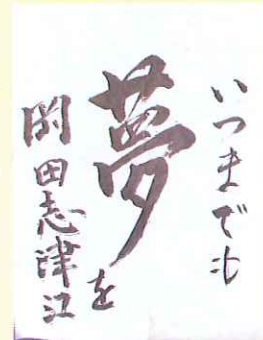 いつまでも
夢を
岡田志津江